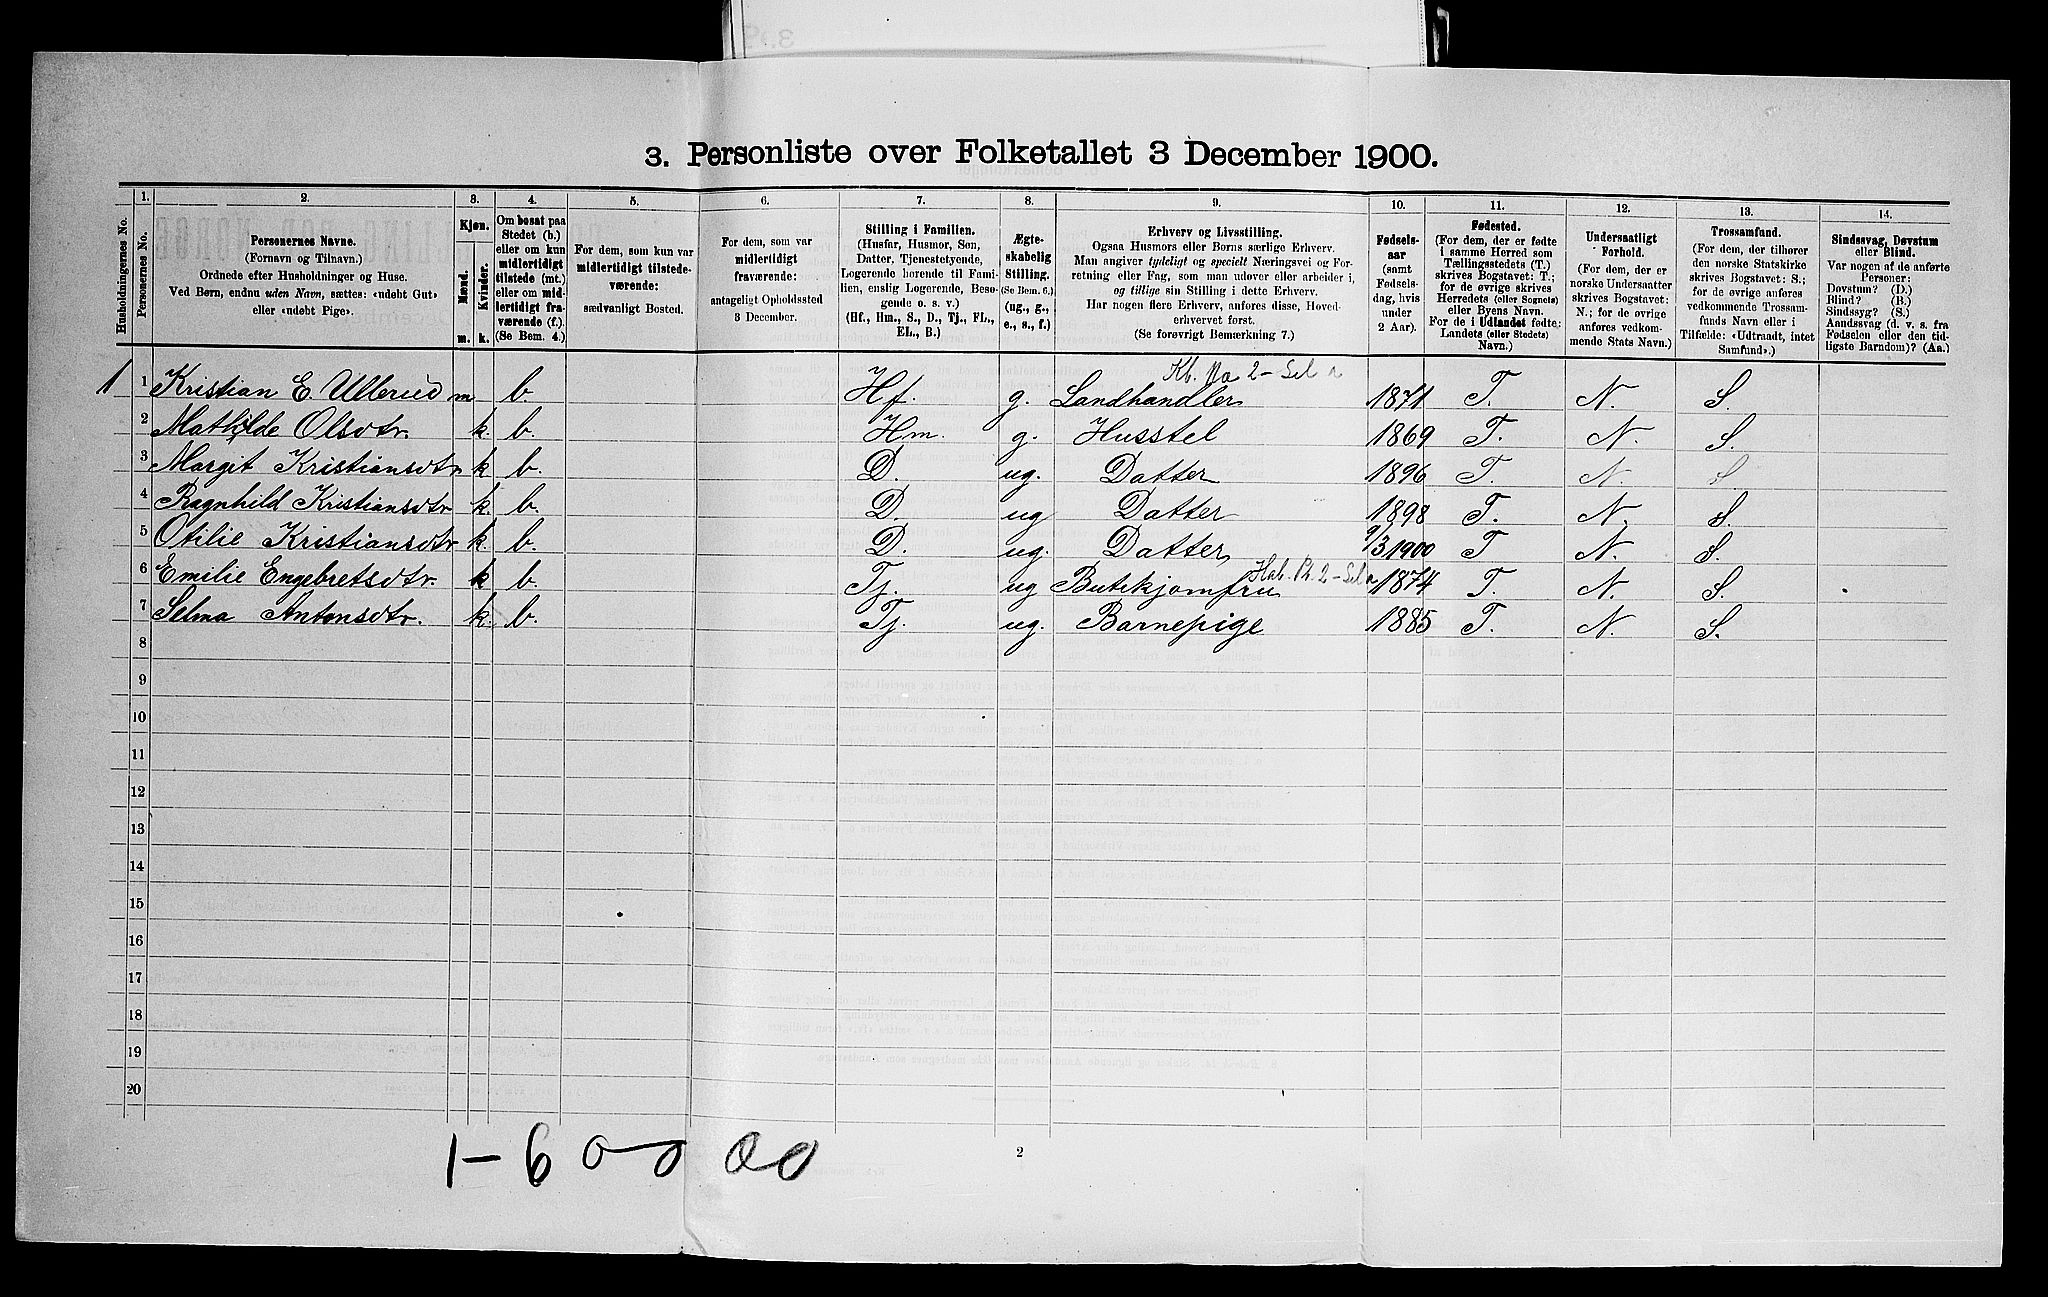 3. Personliste over Folketallet 3 December 1900.
1. 2. 3. 4. 5. 6. 7. 8. 9. 10. 11. 12. 13. 14.
Husholdningernes No.
Personernes No.
Personernes Navne.
(Fornavn og Tilnavn.)
Ordnede efter Husholdninger og Huse.
Ved Børn, endnu uden Navn, sættes: «udøbt Gut»
eller «udøbt Pige».
Kjøn.
Mænd.
Kvinder.
m. k.
Om bosat paa
Stedet (b.)
eller om kun
midlertidigt
tilstede (mt.)
eller om mid-
lertidigt fra-
værende (f.)
(Se Bem. 4.)
For dem, som kun var
midlertidigt tilstede-
værende:
sædvanligt Bosted.
For dem, som var
midlertidigt
fraværende:
antageligt Opholdssted
3 December.
Stilling i Familien.
(Husfar, Husmor, Søn,
Datter, Tjenestetyende,
Logerende hørende til Fami-
lien, enslig Logerende, Besø-
gende o. s. v.)
(Hf., Hm., S., D., Tj., FL.,
EL., B.)
Ægte-
skabelig
Stilling.
(Se Bem. 6.)
(ug., g.,
e., s., f.)
Erhverv og Livsstilling.
Ogsaa Husmors eller Børns særlige Erhverv.
Man angiver tydeligt og specielt Næringsvei og For-
retning eller Fag, som man udøver eller arbeider i,
og tillige sin Stilling i dette Erhverv.
Har nogen flere Erhverv, anføres disse, Hoved-
erhvervet først.
(Se forøvrigt Bemærkning 7.)
Fødsels-
aar
(samt
Fødsels-
dag, hvis
under
2 Aar).
Fødested.
(For dem, der er fødte
i samme Herred som
Tællingsstedets (T.)
skrives Bogstavet: T.;
for de øvrige skrives
Herredets (eller Sognets)
eller Byens Navn.
For de i Udlandet fødte:
Landets (eller Stedets)
Navn.)
Undersaatligt
Forhold.
(For dem, der er
norske Undersaatter
skrives Bogstavet:
N.; for de øvrige
anføres vedkom-
mende Stats Navn.)
Trossamfund.
(For dem, der tilhører
den norske Statskirke
skrives Bogstavet: S.;
for de øvrige anføres
vedkommende Trossam-
funds Navn eller i
Tilfælde: «Udtraadt, intet
Samfund».)
Sindssvag, Døvstum
eller Blind.
Var nogen af de anførte
Personer:
Døvstum? (D.)
Blind? (B.)
Sindssyg? (S.)
Aandssvag (d. v. s. fra
Fødselen eller den tid-
ligste Barndom)? (Aa.)
1 1 Kristian E. Ullerud m b Hf. g. Landhandler 1871 T. N. S.
2 Mathilde Olsdtr. k. b. Hm. g. Husstel 1869 T. N. S.
3 Margit Kristiansdtr k b. D. ug. Datter 1896 T. N. S
4 Ragnhild Kristiansdtr k b. D. ug Datter 1898 T. N. S.
5 Otilie Kristiansdtr k. b. D. ug. Datter 9/3 1900 T N. S.
6 Emilie Engebretsdtr. k b. Tj. ug Butikjomfru 1874 T. N. S.
7 Selma Antonsdtr. k. b. Tj. ug. Barnepige 1885 T. N. S.
8
9
10
11
12
13
14
15
16
17
18
19
20
1 - 6 0 - 0 0 0
2